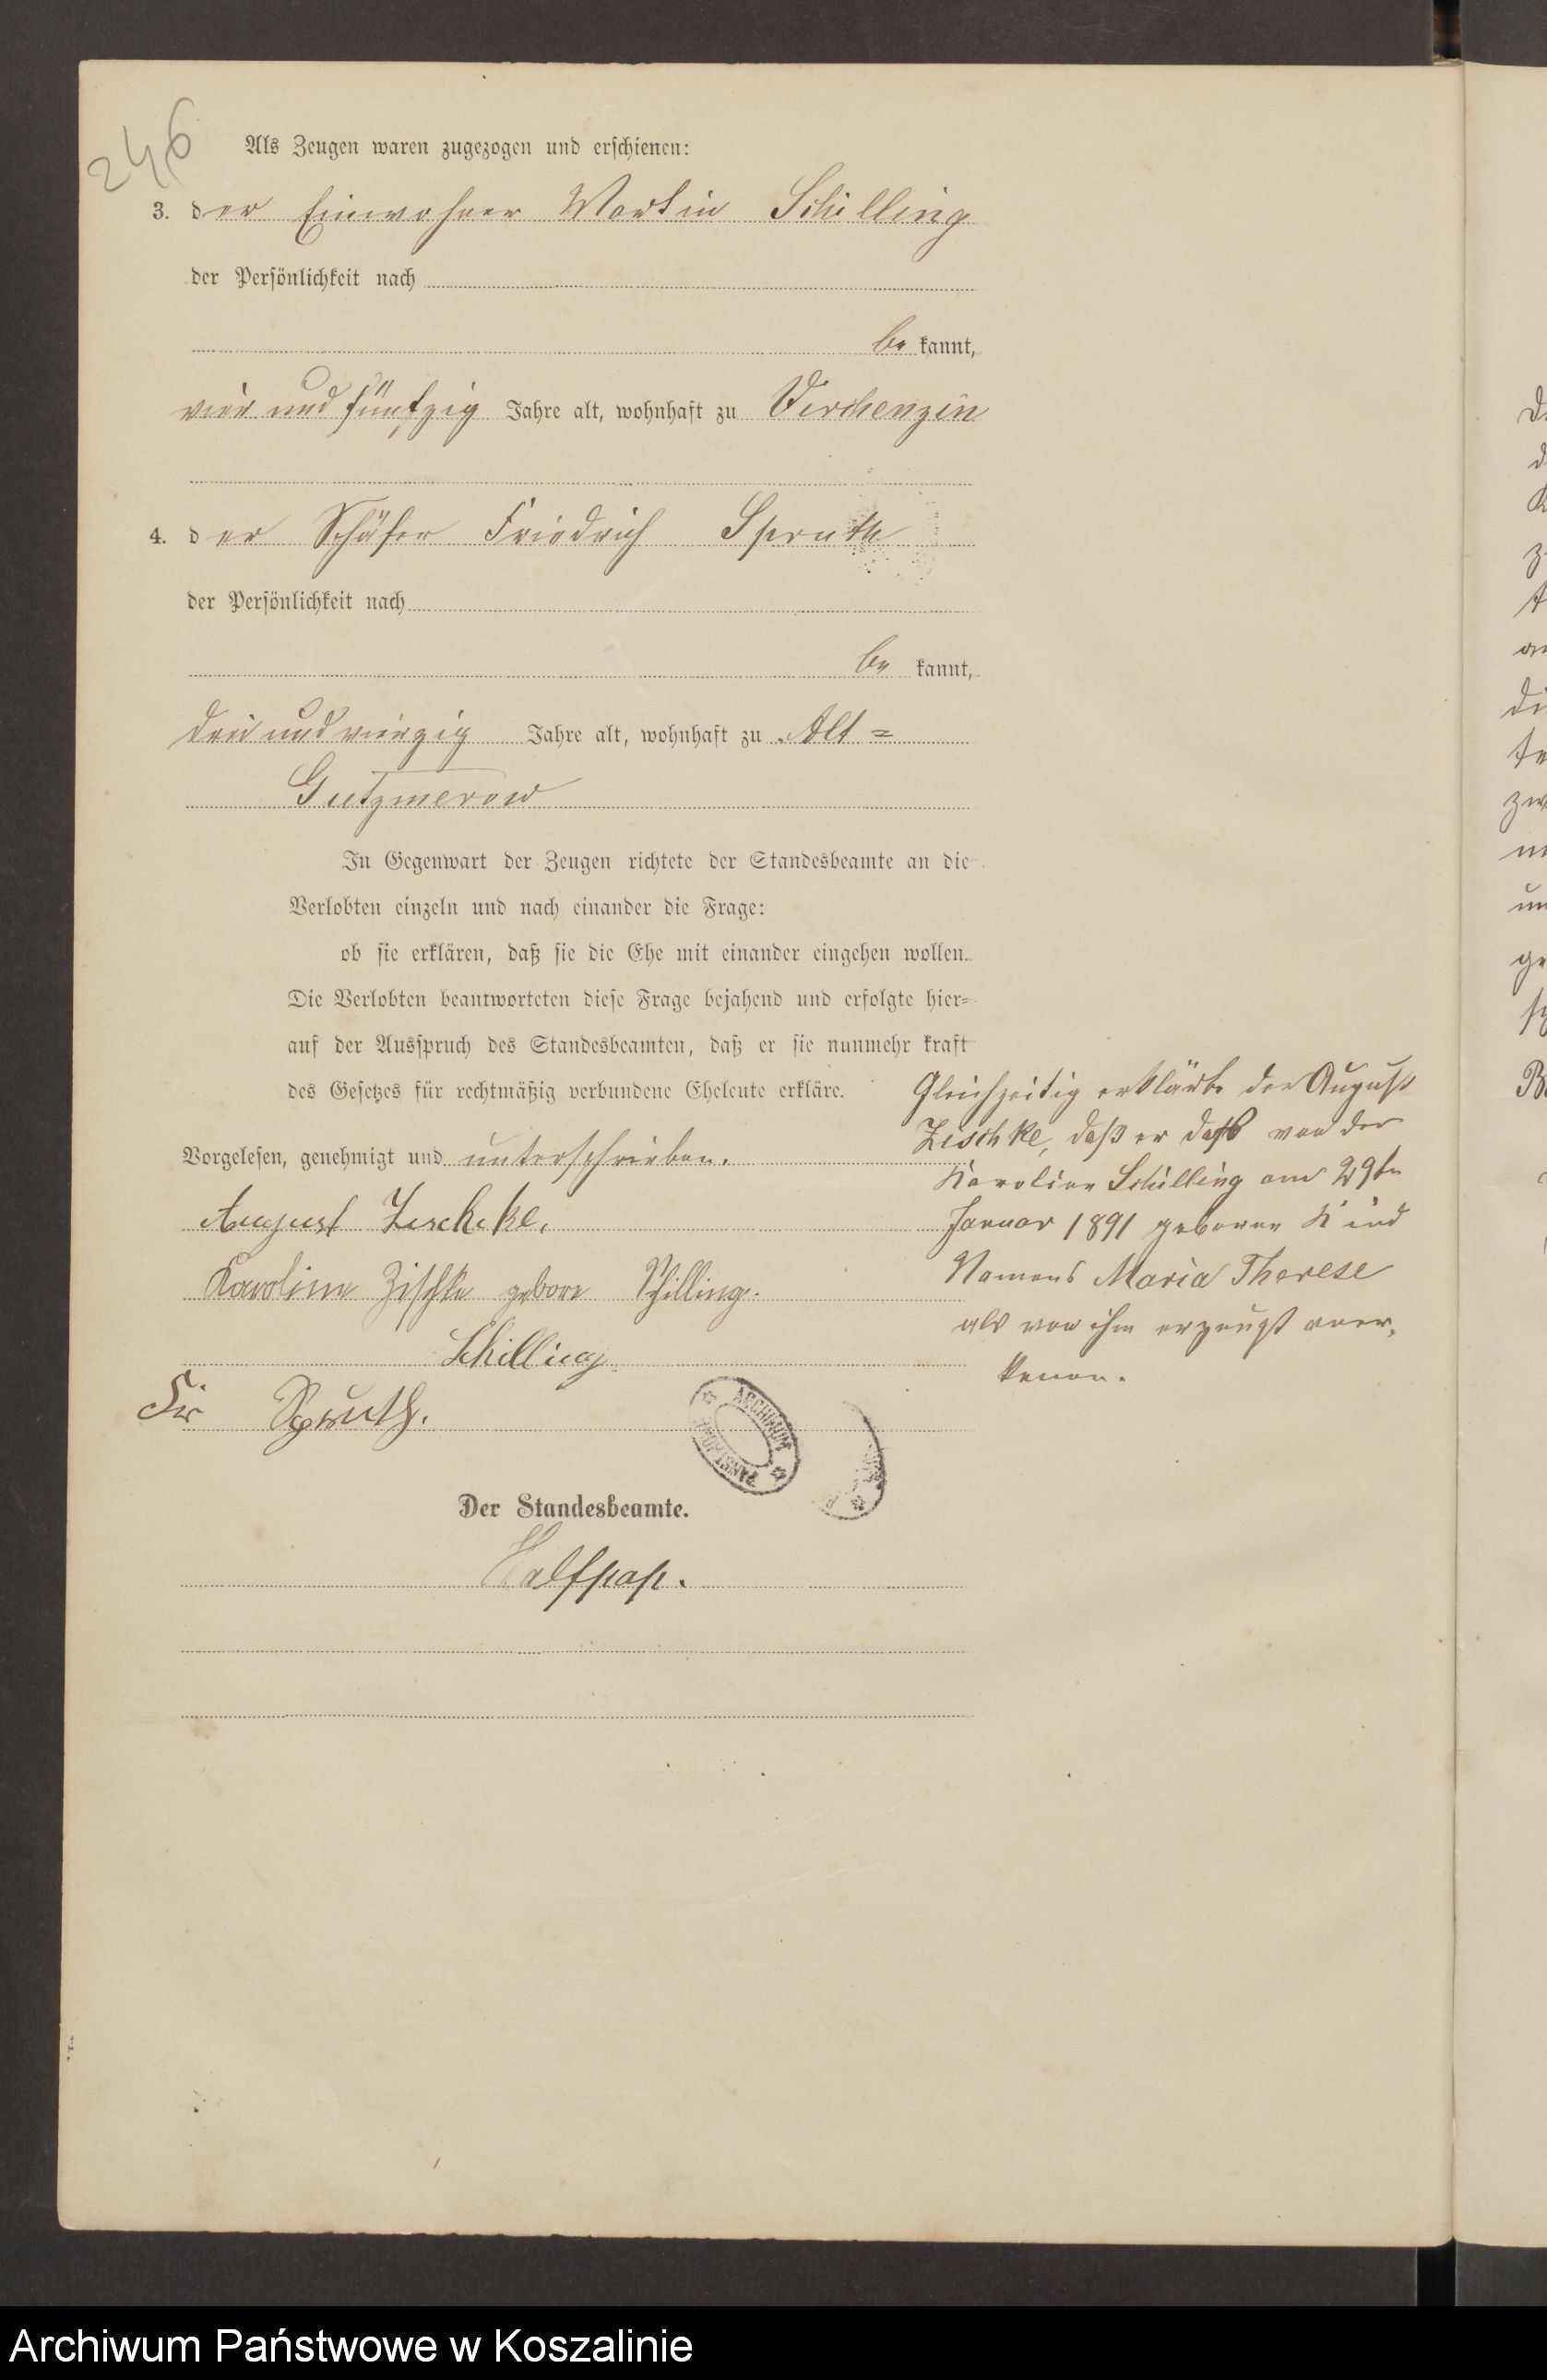 246
Als Zeugen waren zugezogen und erschienen:
3. der Einwohner Martin Schilling
der Persönlichkeit nach
be kannt,
vier und fünfzig Jahre alt, wohnhaft zu Virchenzin
4. der Schäfer Friedrich Spruth
der Persönlichkeit nach
be kannt,
drei und vierzig Jahre alt, wohnhaft zu Alt=
Gutzmerow
In Gegenwart der Zeugen richtete der Standesbeamte an die
Verlobten einzeln und nach einander die Frage:
ob sie erklären, daß sie die Ehe mit einander eingehen wollen.
Die Verlobten beantworteten diese Frage bejahend und erfolgte hier=
auf der Ausspruch des Standesbeamten, daß er sie nunmehr kraft
des Gesetzes für rechtmäßig verbundene Eheleute erkläre.
Vorgelesen, genehmigt und unterschrieben.
August Zischcke.
Karoline Zischke gebore Schilling.
Schilling
Fr Spruth.
Gleichzeitig erklärte der August
Zischke, daß er daß von der
Karoline Schilling am 29ten
Januar 1891 geborene Kind
Namens Maria Therese
als von ihm erzeugt aner-
kenne.
ARCHIWUM PAŃSTWOWE
Der Standesbeamte.
Halfpap.
Archiwum Państwowe w Koszalinie